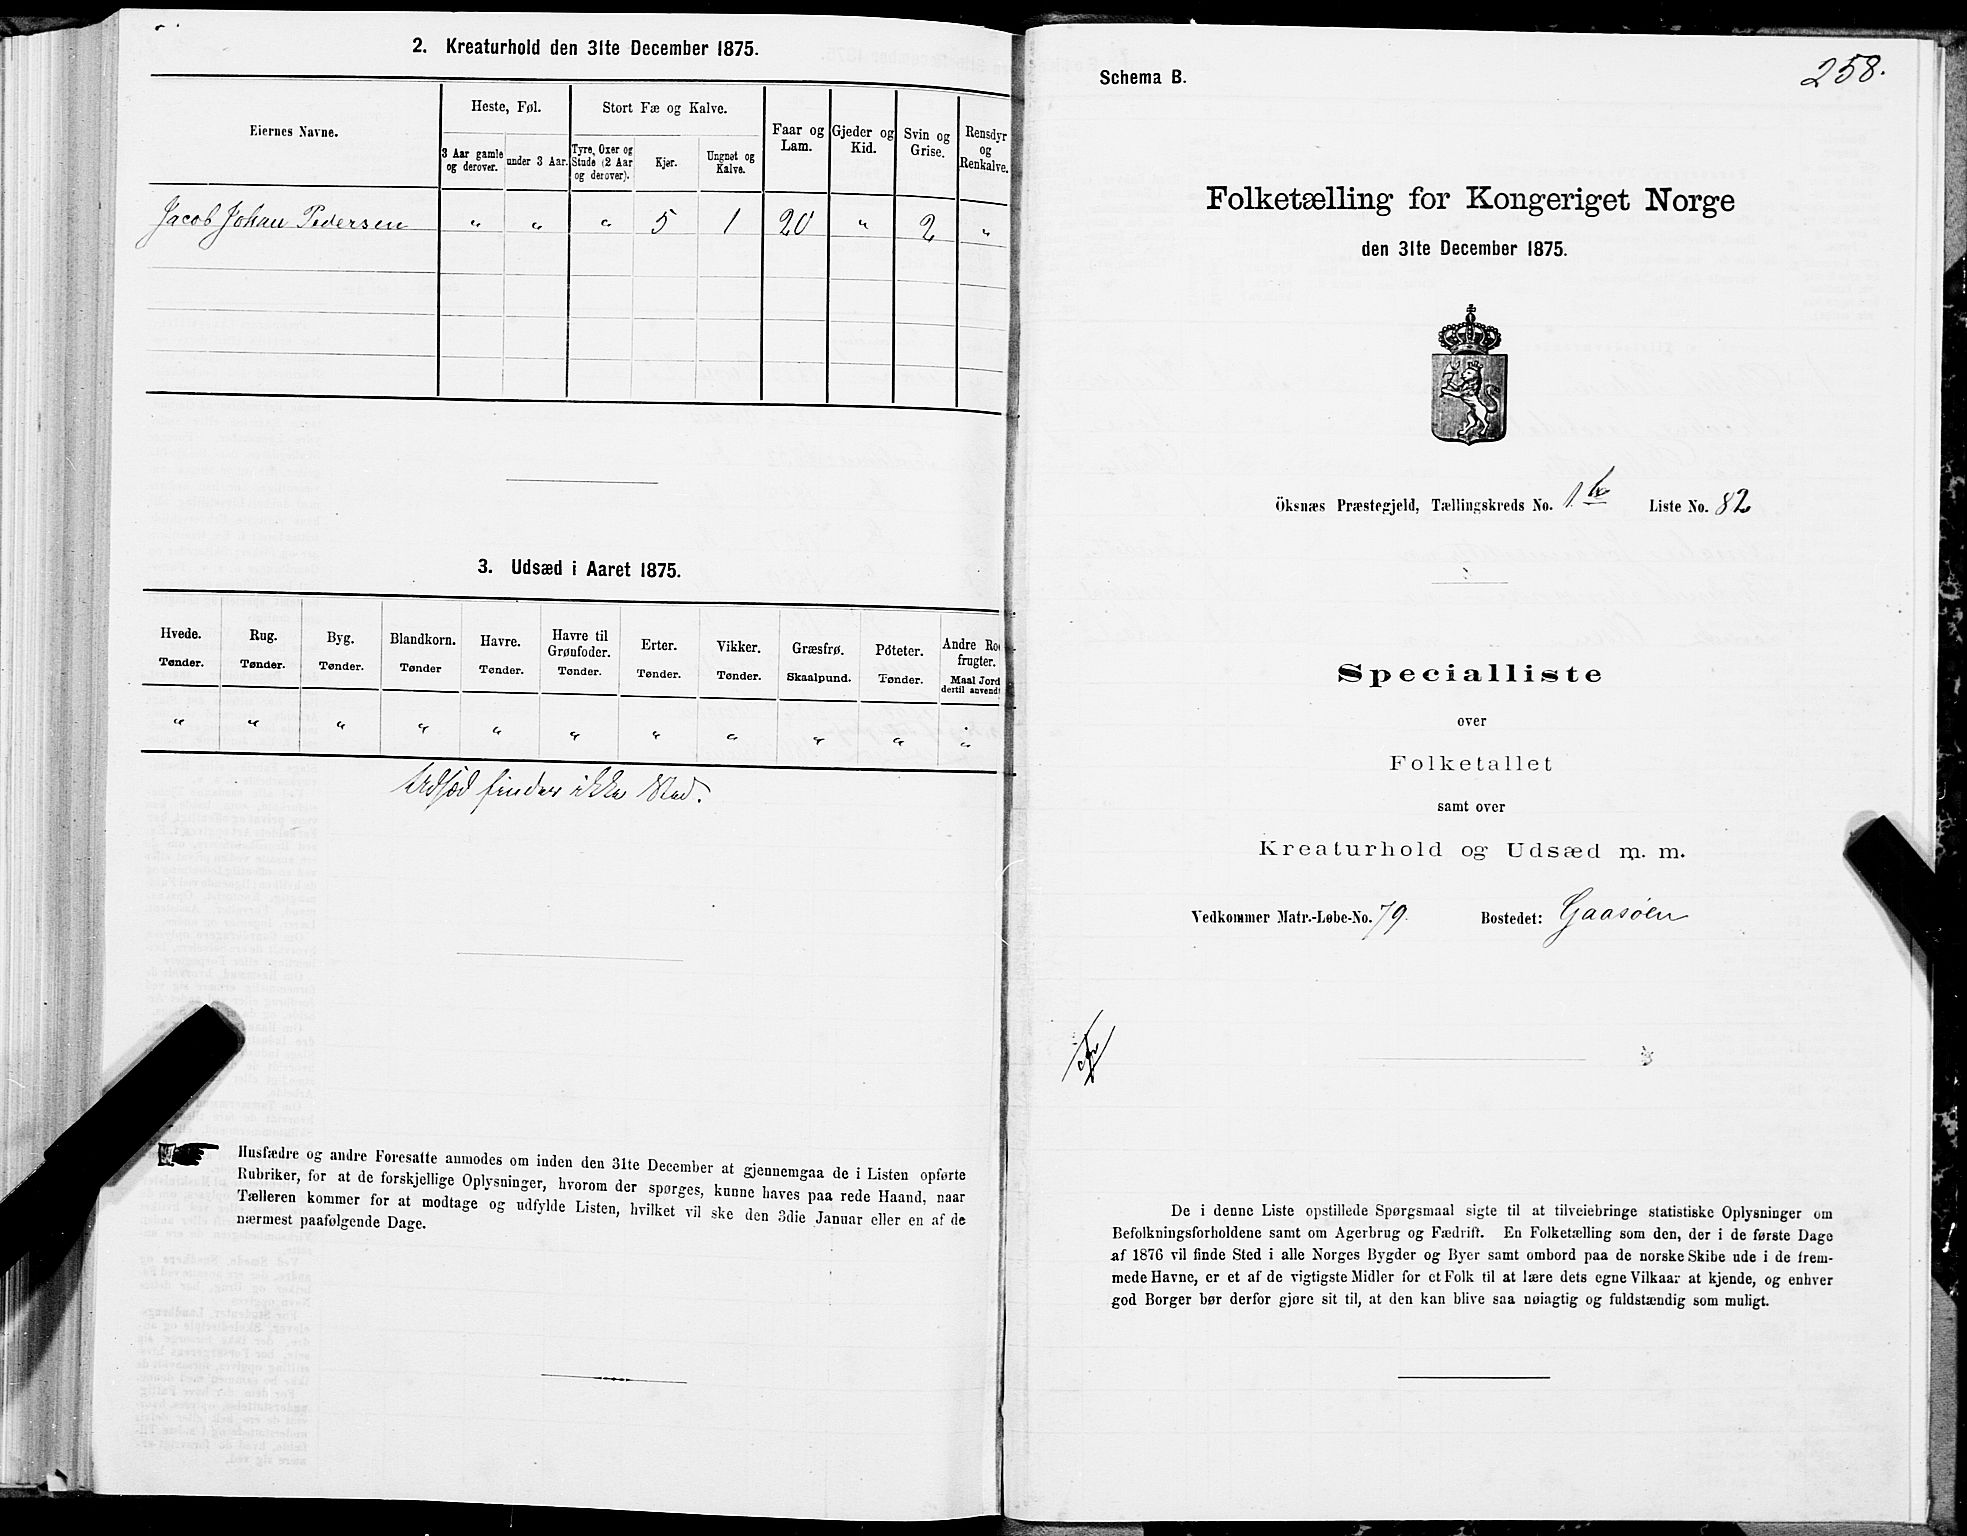 2. Kreaturhold den 31te December 1875.
Eiernes Navne.
Heste, Føl.
3 Aar gamle og derover.
under 3 Aar.
Stort Fæ og Kalve.
Tyre, Oxer og Stude (2 Aar og derover).
Kjør.
Ungnøt og Kalve.
Faar og Lam.
Gjeder og Kid.
Svin og Grise.
Rensdyr og Renkalve.
Jacob Johan Pedersen " " " 5 1 20 " 2 "
3. Udsæd i Aaret 1875.
Hvede. Rug. Byg. Blandkorn. Havre. Havre til Grønfoder. Erter. Vikker. Græsfrø. Poteter. Andre Ro frugter.
Tønder. Tønder. Tønder. Tønder Tønder. Tønder. Tønder. Tønder. Skaalpund. Tønder. Maal Jord dertil anvendt
" " " " " " " " " " "
Udsæd finder ikke Sted.
Husfædre og andre Foresatte anmodes om inden den 31te December at gjennemgaa de i Listen opførte
Rubriker, for at de forskjellige Oplysninger, hvorom der spørges, kunne haves paa rede Haand, naar
Tælleren kommer for at modtage og udfylde Listen, hvilket vil ske den 3die Januar eller en af de
nærmest paafølgende Dage.
Schema B.
258.
Folketælling for Kongeriget Norge
den 31te December 1875.
Öksnæs Præstegjeld, Tællingskreds No. 1ste Liste No. 82
Specialliste
over
Folketallet
samt over
Kreaturhold og Udsæd m. m.
Vedkommer Matr.-Løbe-No. 79. Bostedet: Gaasøen
De i denne Liste opstillede Spørgsmaal sigte til at tilveiebringe statistiske Oplysninger om
Befolkningsforholdene samt om Agerbrug og Fædrift. En Folketælling som den, der i de første Dage
af 1876 vil finde Sted i alle Norges Bygder og Byer samt ombord paa de norske Skibe ude i de frem-
mede Havne, er et af de vigtigste Midler for et Folk til at lære dets egne Vilkaar at kjende, og enhver
god Borger bør derfor gjøre sit til, at den kan blive saa nøiagtig og fuldstændig som muligt.